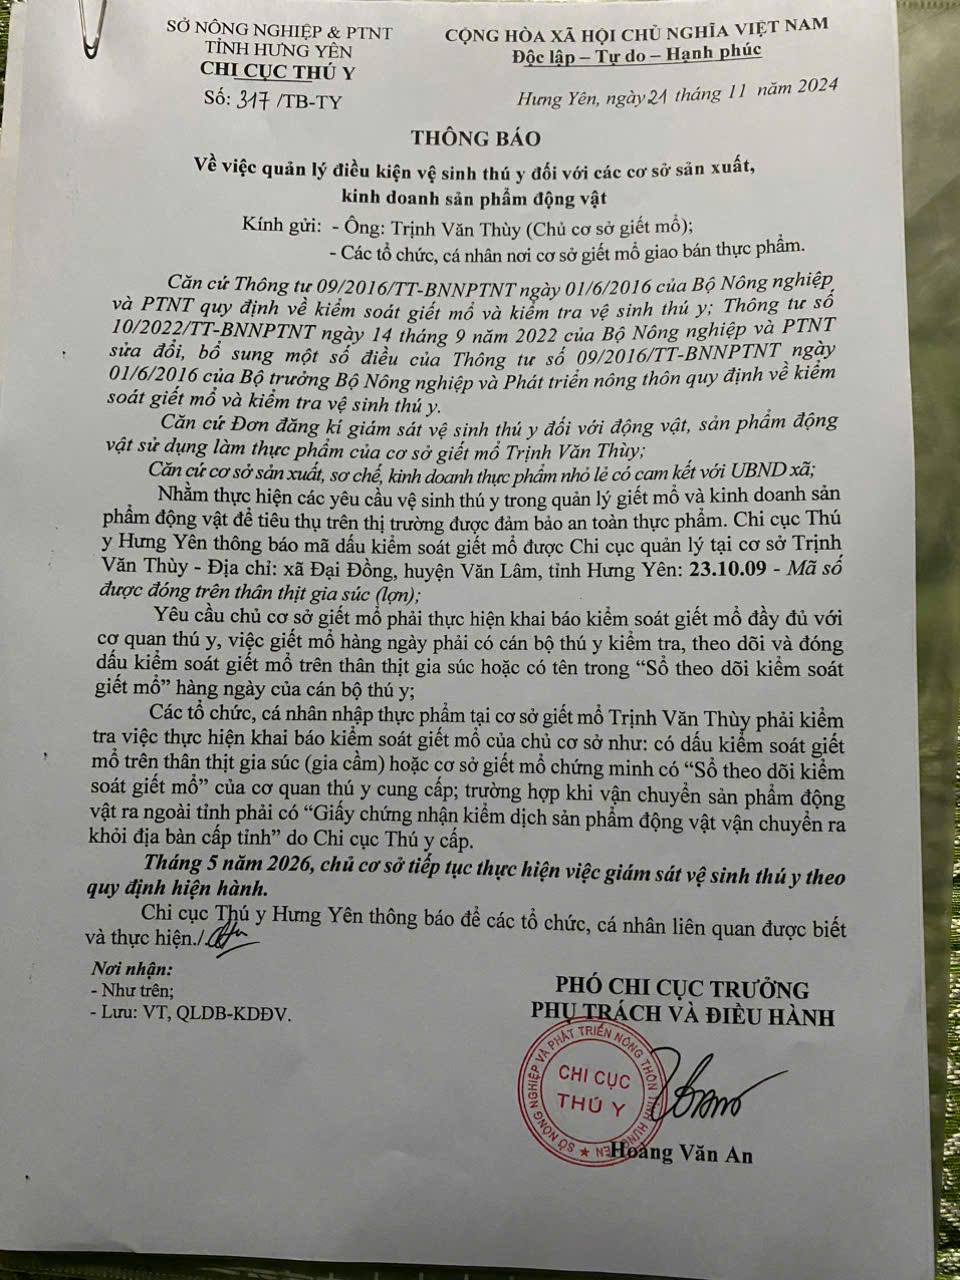 SỞ NÔNG NGHIỆP & PTNT
TỈNH HƯNG YÊN
CHI CỤC THÚ Y
Số: 317 /TB-TY
CỘNG HÒA XÃ HỘI CHỦ NGHĨA VIỆT NAM
Độc lập – Tự do – Hạnh phúc
Hưng Yên, ngày 21 tháng 11 năm 2024
THÔNG BÁO
Về việc quản lý điều kiện vệ sinh thú y đối với các cơ sở sản xuất,
kinh doanh sản phẩm động vật
Kính gửi: - Ông: Trịnh Văn Thùy (Chủ cơ sở giết mổ);
- Các tổ chức, cá nhân nơi cơ sở giết mổ giao bán thực phẩm.
Căn cứ Thông tư 09/2016/TT-BNNPTNT ngày 01/6/2016 của Bộ Nông nghiệp
và PTNT quy định về kiểm soát giết mổ và kiểm tra vệ sinh thú y; Thông tư số
10/2022/TT-BNNPTNT ngày 14 tháng 9 năm 2022 của Bộ Nông nghiệp và PTNT
sửa đổi, bổ sung một số điều của Thông tư số 09/2016/TT-BNNPTNT ngày
01/6/2016 của Bộ trưởng Bộ Nông nghiệp và Phát triển nông thôn quy định về kiểm
soát giết mổ và kiểm tra vệ sinh thú y.
Căn cứ Đơn đăng kí giám sát vệ sinh thú y đối với động vật, sản phẩm động
vật sử dụng làm thực phẩm của cơ sở giết mổ Trịnh Văn Thùy;
Căn cứ cơ sở sản xuất, sơ chế, kinh doanh thực phẩm nhỏ lẻ có cam kết với UBND xã;
Nhằm thực hiện các yêu cầu vệ sinh thú y trong quản lý giết mổ và kinh doanh sản
phẩm động vật để tiêu thụ trên thị trường được đảm bảo an toàn thực phẩm. Chi cục Thú
y Hưng Yên thông báo mã dấu kiểm soát giết mổ được Chi cục quản lý tại cơ sở Trịnh
Văn Thùy - Địa chỉ: xã Đại Đồng, huyện Văn Lâm, tỉnh Hưng Yên: 23.10.09 - Mã số
được đóng trên thân thịt gia súc (lợn);
Yêu cầu chủ cơ sở giết mổ phải thực hiện khai báo kiểm soát giết mổ đầy đủ với
cơ quan thú y, việc giết mổ hàng ngày phải có cán bộ thú y kiểm tra, theo dõi và đóng
dấu kiểm soát giết mổ trên thân thịt gia súc hoặc có tên trong “Sổ theo dõi kiểm soát
giết mổ” hàng ngày của cán bộ thú y;
Các tổ chức, cá nhân nhập thực phẩm tại cơ sở giết mổ Trịnh Văn Thùy phải kiểm
tra việc thực hiện khai báo kiểm soát giết mổ của chủ cơ sở như: có dấu kiểm soát giết
mổ trên thân thịt gia súc (gia cầm) hoặc cơ sở giết mổ chứng minh có “Sổ theo dõi kiểm
soát giết mổ” của cơ quan thú y cung cấp; trường hợp khi vận chuyển sản phẩm động
vật ra ngoài tỉnh phải có “Giấy chứng nhận kiểm dịch sản phẩm động vật vận chuyển ra
khỏi địa bàn cấp tỉnh” do Chi cục Thú y cấp.
Tháng 5 năm 2026, chủ cơ sở tiếp tục thực hiện việc giám sát vệ sinh thú y theo
quy định hiện hành.
Chi cục Thú y Hưng Yên thông báo để các tổ chức, cá nhân liên quan được biết
và thực hiện./.
Nơi nhận:
- Như trên;
- Lưu: VT, QLDB-KDĐV.
PHÓ CHI CỤC TRƯỞNG
PHỤ TRÁCH VÀ ĐIỀU HÀNH
SỞ NÔNG NGHIỆP VÀ PHÁT TRIỂN NÔNG THÔN TỈNH HƯNG YÊN
CHI CỤC
THÚ Y
Hoàng Văn An